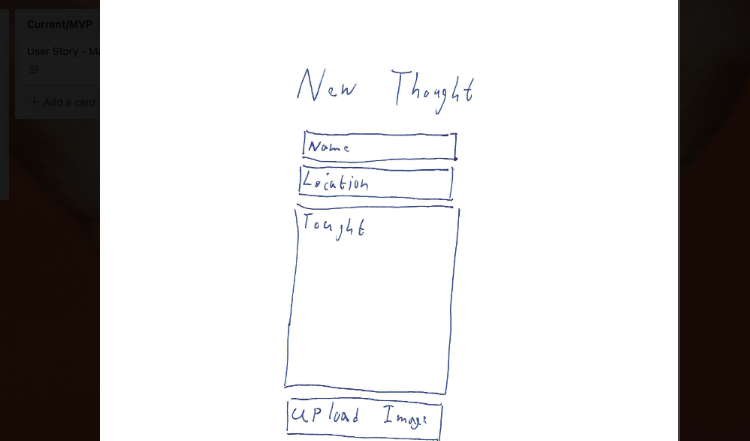 Current/MVP
User Story - Ma
+ Add a card
New Thought
Name
Location
Tought
Upload Image